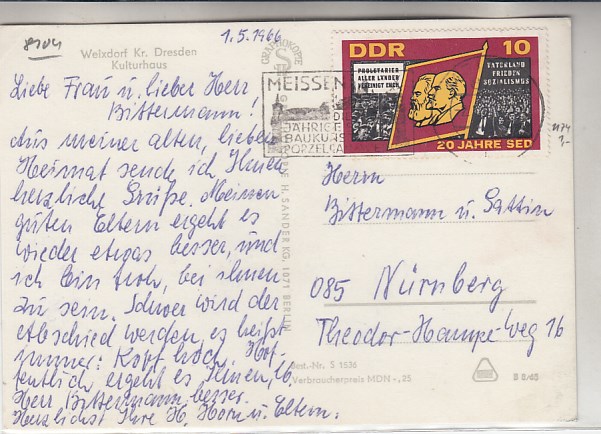 8704
1.5.1966
Weixdorf Kr. Dresden
Kulturhaus
Liebe Frau u. lieber Herr
Bittermann!
Aus meiner alten, lieben
Heimat sende ich Ihnen
herzliche Grüße. Meinen
guten Eltern ergeht es
wieder etwas besser, und
ich bin froh, bei ihnen
zu sein. Schwer wird der
Abschied werden, es heißt
immer: Kopf hoch. Hof-
fentlich ergeht es Ihnen, lb.
Herr Bittermann besser.
Herzlichst Ihre H. Horn u. Eltern.
GRAPHOKOPIE
H. SANDER KG, 1071 BERLIN
MEISSEN
JÄHRIGE
BAUKUNS
PORZELLA
DDR 10
PROLETARIER
ALLER LÄNDER
VEREINIGT EUCH
VATERLAND
FRIEDEN
SOZIALISMUS
20 JAHRE SED
1174
Herrn
Bittermann u. Gattin
085 Nürnberg
Theodor-Hampe-Weg 16
Best.-Nr. S 1536
Verbraucherpreis MDN -,25